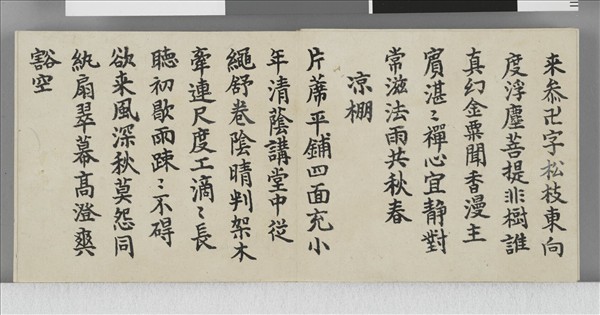 来叅卍字松枝東向
度浮塵菩提非樹誰
真幻金粟聞香漫主
賓湛〻禪心宜静對
常滋法雨共秋春
凉棚
片蓆平鋪四面充小
年清蔭講堂中從
繩舒卷陰晴判架木
牽連尺度工滴〻長
聴初歇雨踈〻不碍
欲来風深秋莫怨同
紈扇翠幕髙澄爽
豁空